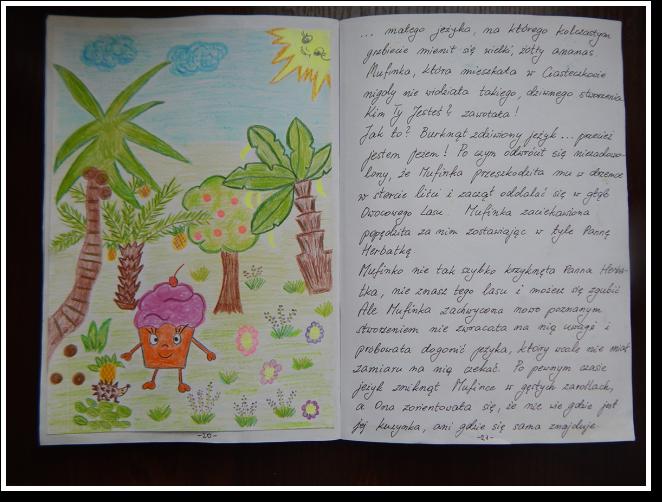 ... małego jeżyka, na którego kolczastym
grzbiecie mienił się wielki, żółty ananas.
Mufinka, która mieszkała w Ciasteczkowie
nigdy nie widziała takiego, dziwnego stworzenia
Kim Ty Jesteś? zawołała!
Jak to? Burknął zdziwiony jeżyk... przecież
jestem Jeżem! Po czym odwrócił się niezadowo-
lony, że Mufinka przeszkodziła mu w drzemce
w stercie liści i zaczął oddalać się w głąb
Owocowego Lasu. Mufinka zaciekawiona
popędziła za nim zostawiając w tyle Pannę
Herbatkę
Mufinko nie tak szybko krzyknęła Panna Herba-
tka, nie znasz tego lasu i możesz się zgubić
Ale Mufinka zachwycona nowo poznanym
stworzeniem nie zwracała na nią uwagi i
próbowała dogonić jeżyka, który wcale nie miał
zamiaru na nią czekać. Po pewnym czasie
jeżyk zniknął Mufince w gęstych zaroślach,
a Ona zorientowała się, że nie wie gdzie jest
jej kuzynka, ani gdzie się sama znajduje
-20-
-21-